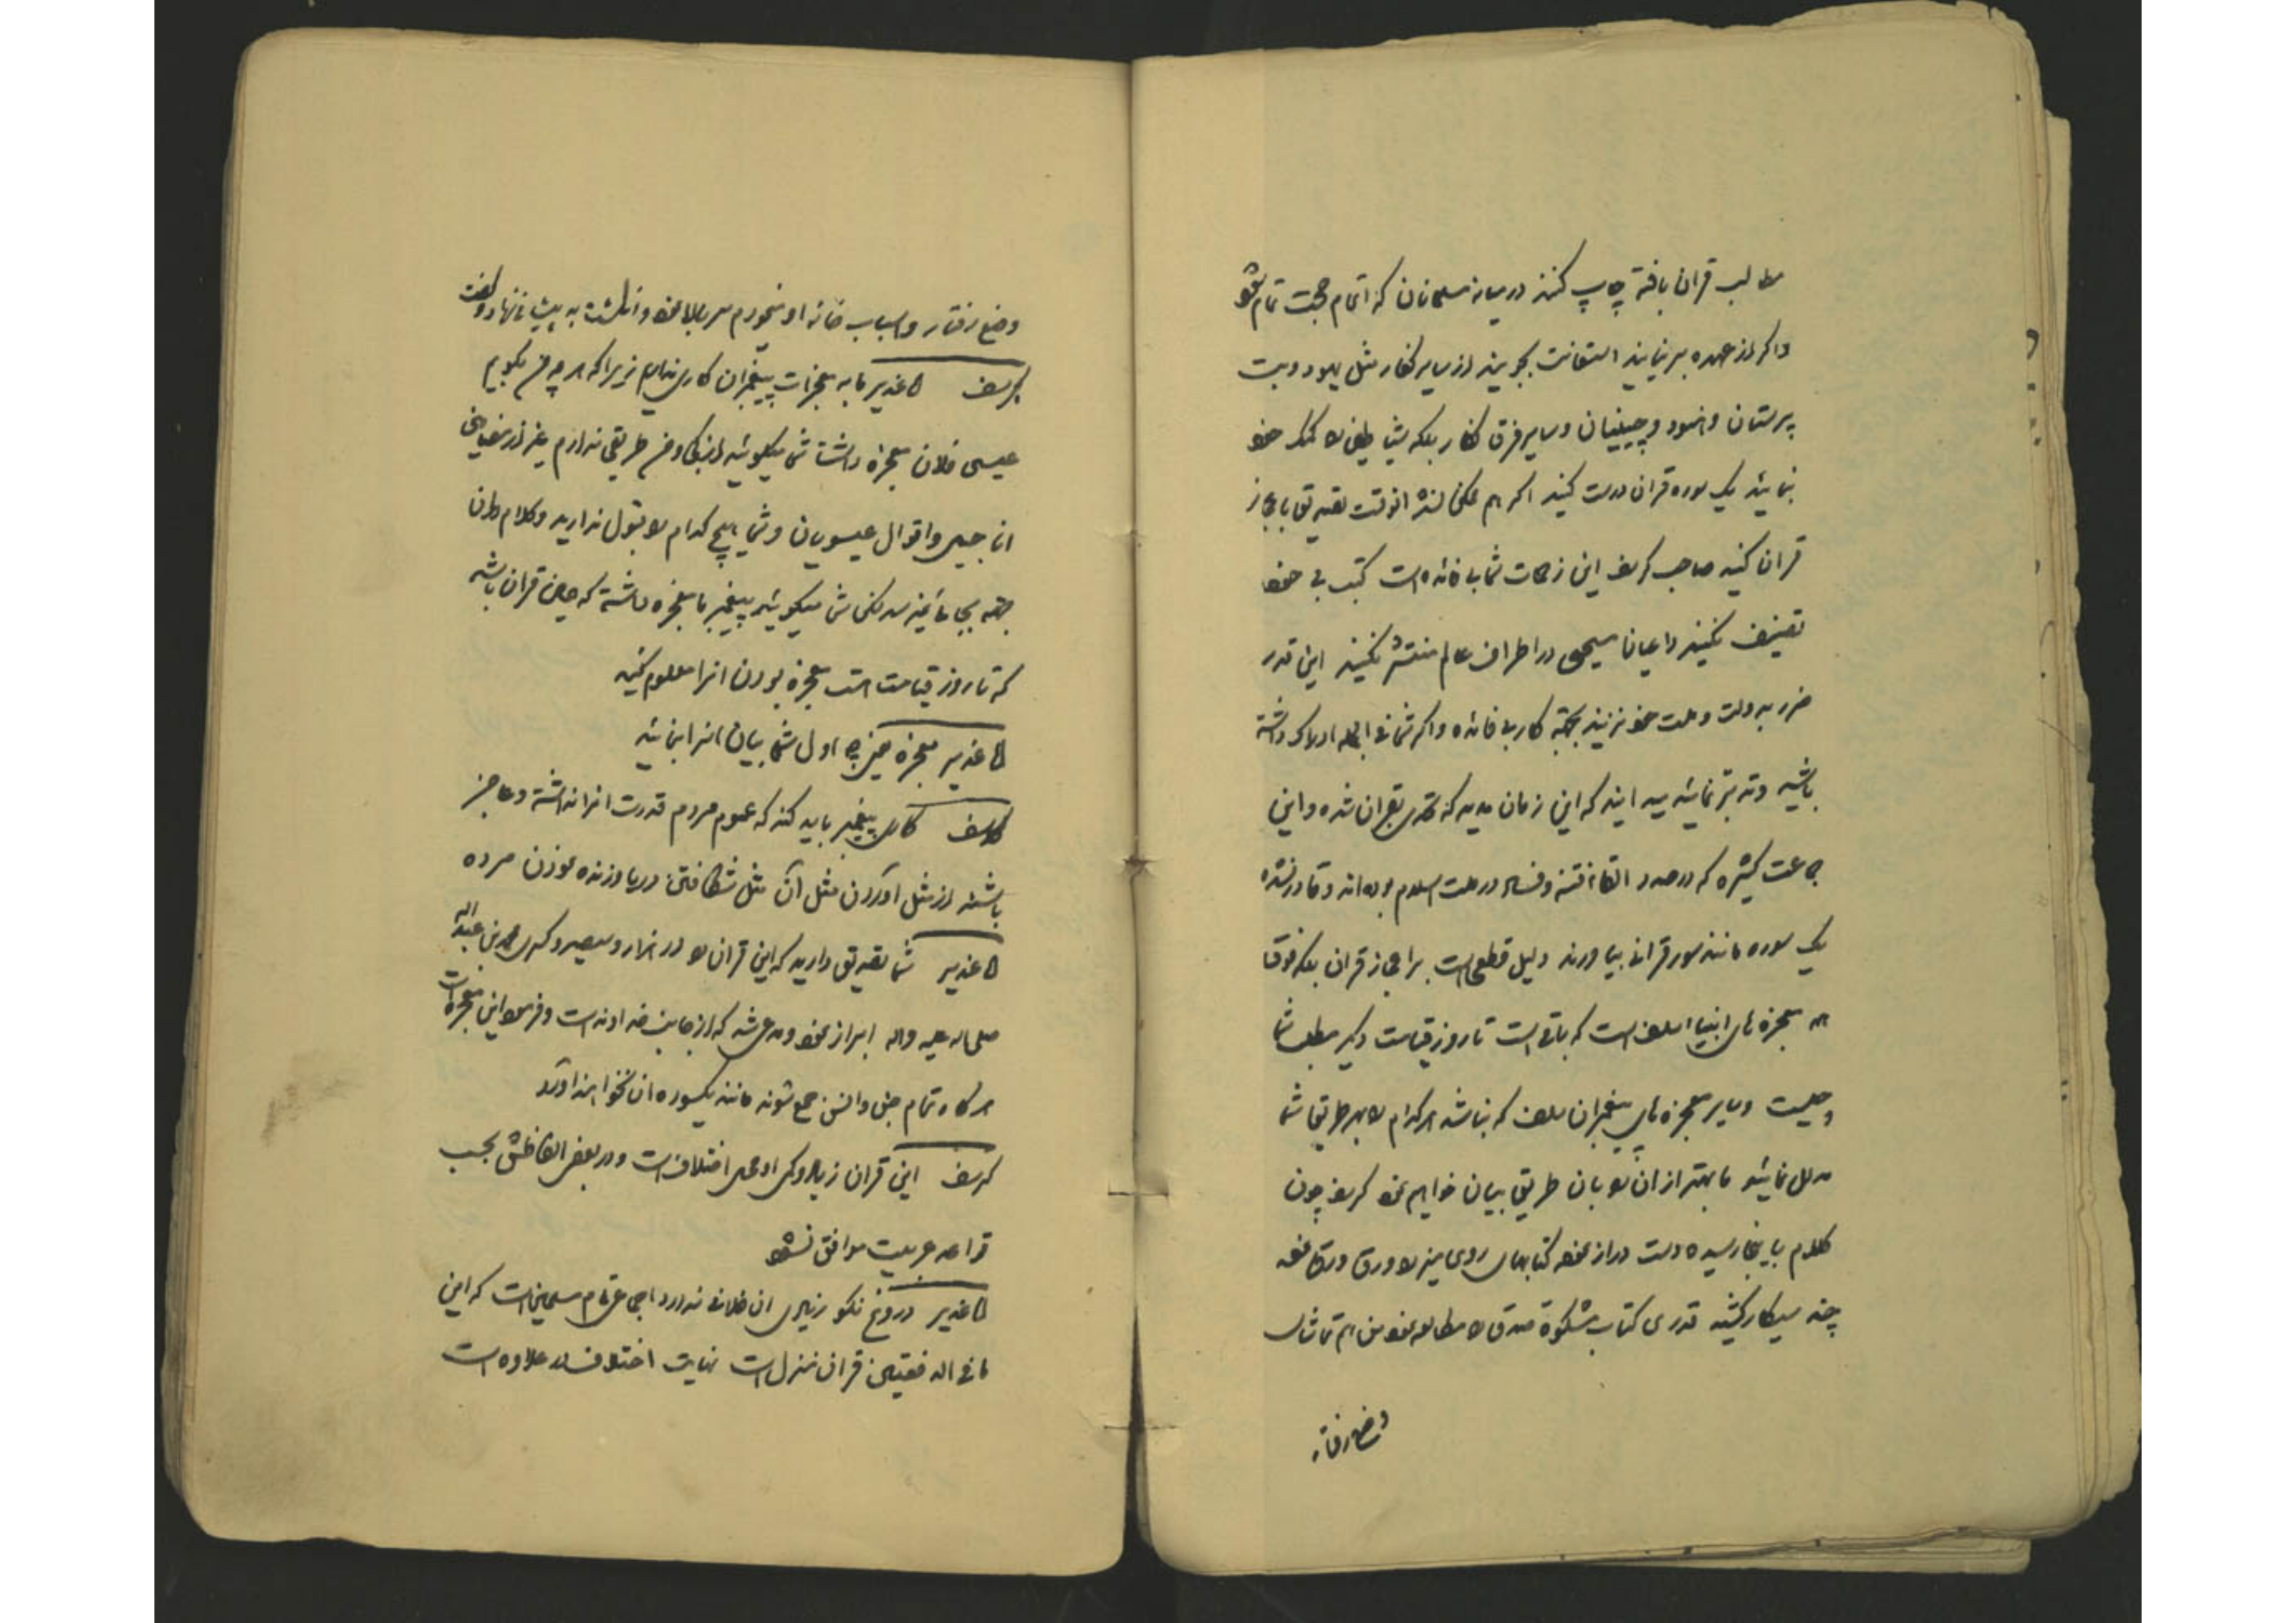 مطالب قران بافته چاپ کنند در میانه مسلمانان که اتمام حجت تمام شود
واگر از عهده برنیایند استعانت بجویند از سایر کفار مثل یهود و بت
پرستان و هنود و چینیان و سایر فرق کفار بلکه شیاطین را کمک خود
نمایند یک سوره قران درست کنید اگر هم ممکن نشد انوقت تصدیق باعجاز
قران کنید صاحب کریف این زحمات شما بی فائده است کتب بی خود
تصنیف نکنید داعیان مسیحی در اطراف عالم منتشر نکنید این قدر
ضرر به دولت و ملت خود نزنید بجهة کار بی فائده واگر شما فی الجمله ادراک داشته
باشید و تدبر نمائید میدانید که این زمان مدید که تحدی بقران شده و این
جماعت کثیره که در صدد القاء فتنه و فساد در ملت اسلام بوده‌اند و قادر نشده
یک سوره مانند سور قرانی بیاورند دلیل قطعی است بر اعجاز قران بلکه فوق
همه معجزه های انبیا سلف است که باقی است تا روز قیامت دیگر مطلب شما
چیست و سایر معجزه های پیغمبران سلف که بنا شد هر کدام را بهر طریق شما
مدلل نمائید ما بهتر از ان را بان طریق بیان خواهیم نمود کریف چون
کلام باینجا رسید دست دراز نموده کتابهای روی میز را ورق ورق نموده
چند سیکار کشید قدری کتاب مشکوة صدق را مطالعه نمود من هم تماشای
وضع رفتار
وضع رفتار و اسباب خانه او میخوردم سر بالا نمود و انکشت به پیشانی نهاد و گفت
کریف کاغذیر ما به معجزات پیغمبران کاری نداریم زیرا که هر چه من بگویم
عیسی فلان معجزه داشت شما میگوئید از کجا و من طریقی ندارم غیر از
اناجیل و اقوال عیسویان و شما هیچ کدام را قبول ندارید و کلام مان
بجائی نمیرسد لکن شما میگوئید پیغمبر ما معجزه داشته که همین قران باشد
که تا روز قیامت است معجزه بودن انرا معلوم کنید
کاغذیر معجزه چیز چه اول شما بیان انرا بنمائید
کریف کاری پیغمبر باید کند که عموم مردم قدرت انرا نداشته و عاجز
باشند از مثل اوردن مثل ان مثل شکافتن دریا و زنده نمودن مرده
کاغذیر شما تصدیق دارید که این قران را در هزار و سیصد و کسری محمد بن عبدالله
صلی الله علیه واله ابراز نمود و مدعی شد که از جانب خداوند است و فرمود این معجزه است
هرگاه تمام جن و انس جمع شوند مانند یکسوره ان نخواهند اورد
کریف این قران زیاد و کمی او محل اختلاف است و در بعض الفاظش بحسب
قواعد عربیت موافق نشود
کاغذیر دروغ نگو زیادی ان خلافی ندارد اجماع تمام مسلمین است که این
ما فی الدفتین قران منزل است نهایت اختلاف در علاوه است